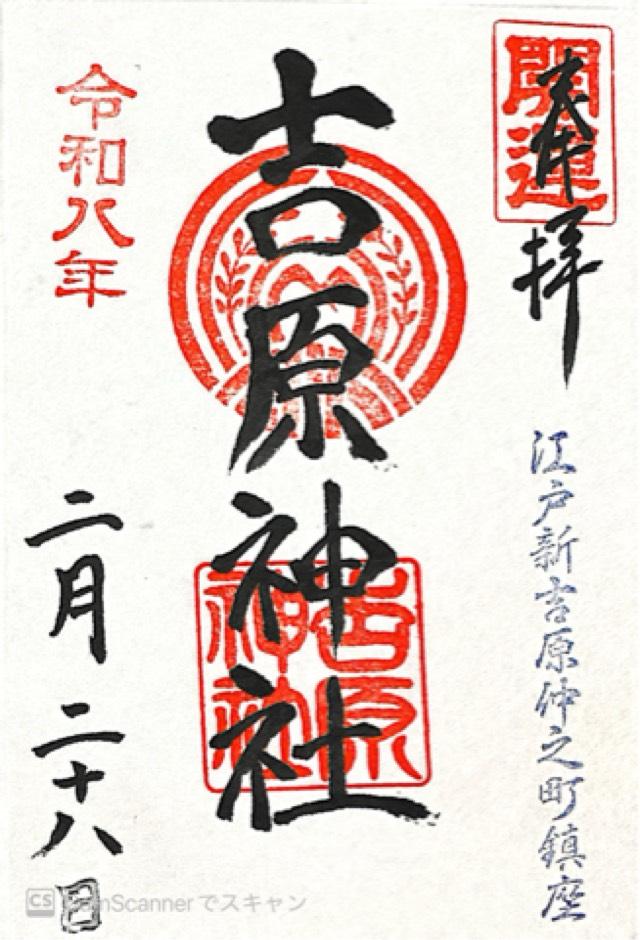 開運
奉拝
江戸新吉原仲之町鎮座
吉原神社
吉原神社
令和八年
二月二十八日
CS CamScannerでスキャン